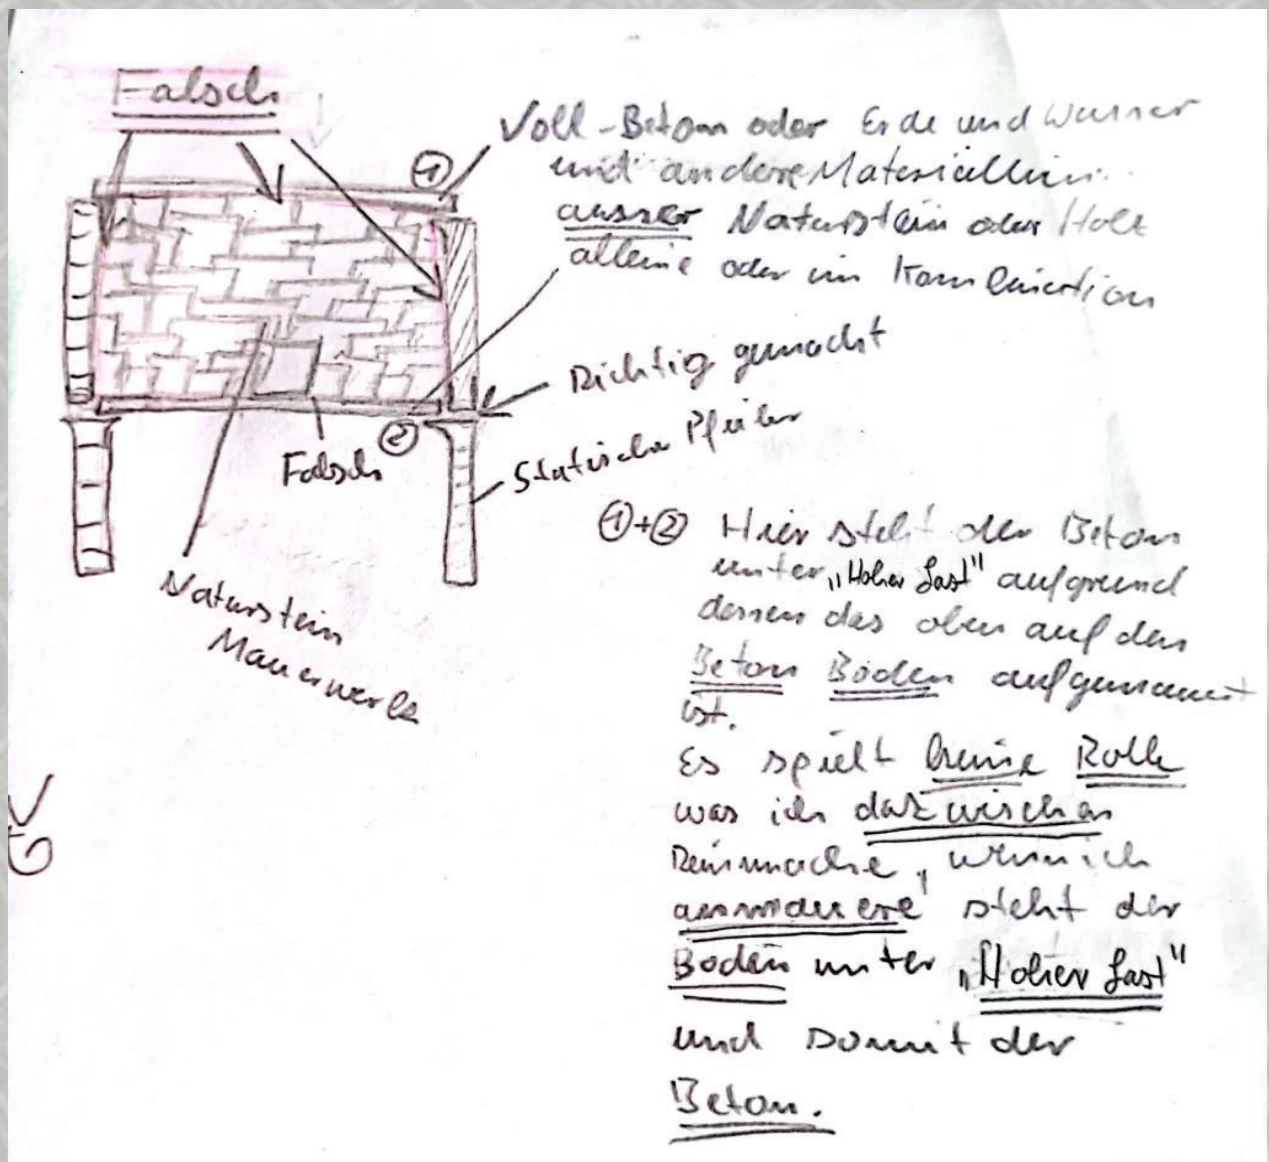 Falsch
①
Voll-Beton oder Erde und Wasser
und andere Materiallien
ausser Naturstein oder Holz
alleine oder in Kombination
Richtig gemacht
Statische Pfeiler
②
Falsch
Naturstein
Mauerwerk
①+② Hier steht der Beton
unter „Hoher Last" aufgrund
dessen das oben auf den
Beton Boden aufgemauert
ist.
Es spielt keine Rolle
was ich dazwischen
Reinmache, wenn ich
anmauere steht der
Boden unter „Hoher Last"
und somit der
Beton.